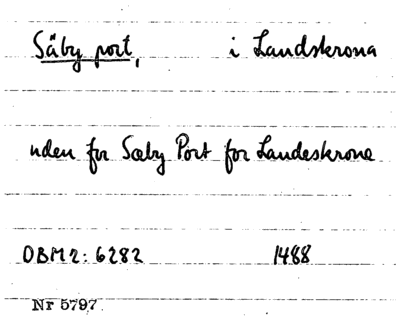 Säby port, i Landskrona
uden for Sæby Port for Landeskrone
DBM 2: 6282 1488
Nr 5797